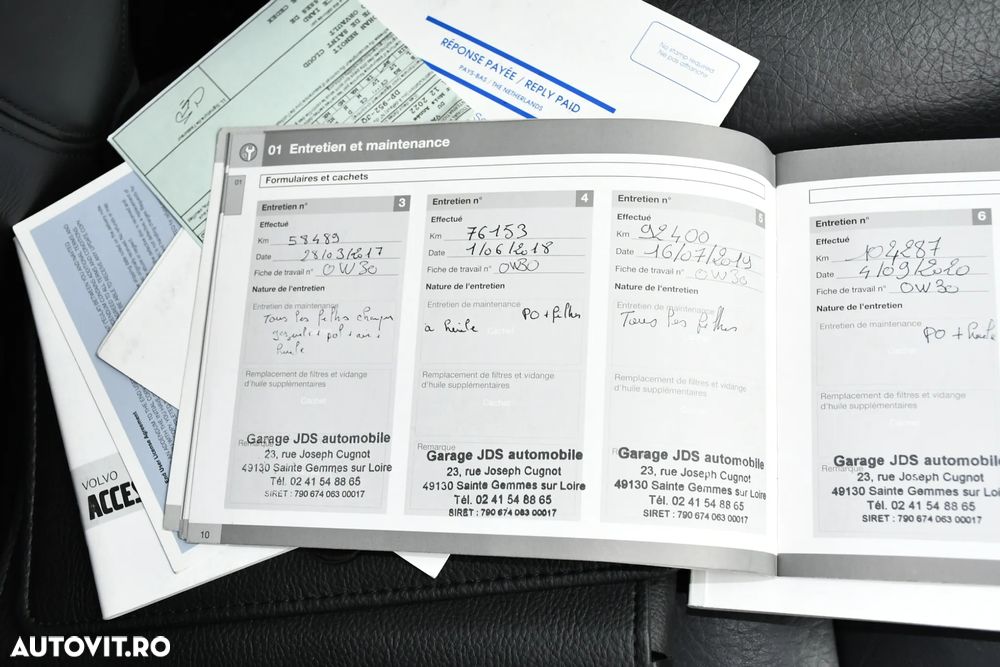 RÉPONSE PAYÉE / REPLY PAID
PAYS-BAS / THE NETHERLANDS
No stamp required
Ne pas affranchir
DE SAINT CLOUD
01 Entretien et maintenance
01
Formulaires et cachets
Entretien n° 3
Effectué
Km 58489
Date 28/03/2017
Fiche de travail n° 0W30
Nature de l'entretien
Entretien de maintenance
Tous les filtres
huile
Remplacement de filtres et vidange
d'huile supplémentaires
Cachet
Remarque
Garage JDS automobile
23, rue Joseph Cugnot
49130 Sainte Gemmes sur Loire
Tél. 02 41 54 88 65
SIRET : 790 674 063 00017
Entretien n° 4
Effectué
Km 76153
Date 1/06/2018
Fiche de travail n° 0W30
Nature de l'entretien
Entretien de maintenance
PO + filtres
a huile
Cachet
Remplacement de filtres et vidange
d'huile supplémentaires
Cachet
Remarque
Garage JDS automobile
23, rue Joseph Cugnot
49130 Sainte Gemmes sur Loire
Tél. 02 41 54 88 65
SIRET : 790 674 063 00017
Entretien n° 5
Effectué
Km 92400
Date 16/07/2019
Fiche de travail n° 0W30
Nature de l'entretien
Entretien de maintenance
Tous les filtres
Cachet
Remplacement de filtres et vidange
d'huile supplémentaires
Cachet
Remarque
Garage JDS automobile
23, rue Joseph Cugnot
49130 Sainte Gemmes sur Loire
Tél. 02 41 54 88 65
SIRET : 790 674 063 00017
10
Entretien n° 6
Effectué
Km 104287
Date 4/09/2020
Fiche de travail n° 0W30
Nature de l'entretien
Entretien de maintenance
PO + huile
Cachet
Remplacement de filtres et vidange
d'huile supplémentaires
Cachet
Remarque
Garage JDS automobile
23, rue Joseph Cugnot
49130 Sainte Gemmes sur Loire
Tél. 02 41 54 88 65
SIRET : 790 674 063 00017
End User License Agreement
VOLVO
ACCES
AUTOVIT.RO